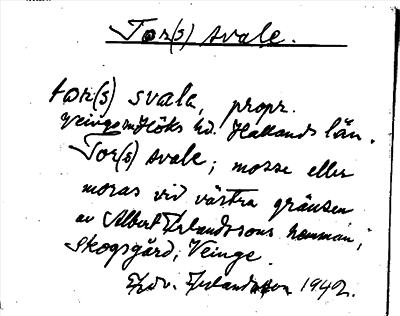 Tor(s) svale.
tor(s) svala, propr.
Veinge Höks hd. Hallands län.
Tor(s) svale; mosse eller
moras vid västra gränsen
av Albert Erlandssons hemman,
Skogsgård, Veinge.
Edv. Erlandsson 1942.